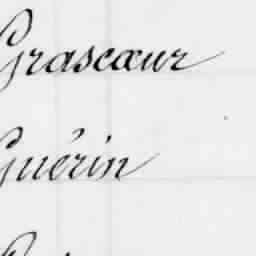 Grascœur
Guérin